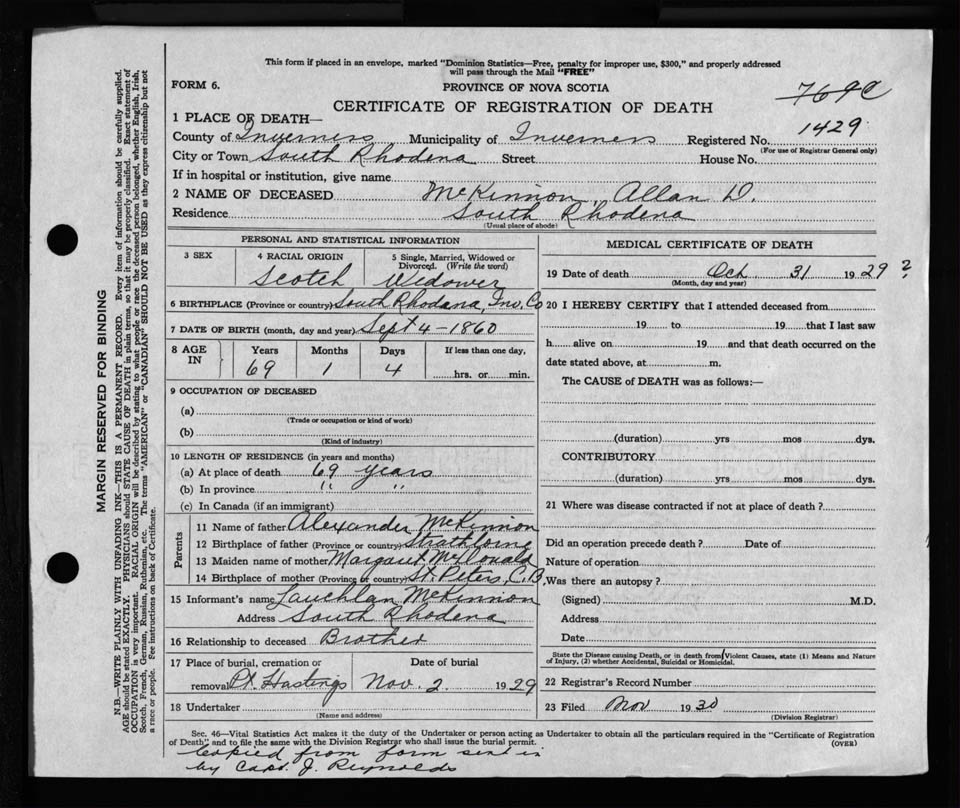 This form if placed in an envelope, marked "Dominion Statistics—Free, penalty for improper use, $300," and properly addressed
will pass through the Mail "FREE"
FORM 6.
PROVINCE OF NOVA SCOTIA
769C
CERTIFICATE OF REGISTRATION OF DEATH
1 PLACE OF DEATH—
1429
County of Inverness Municipality of Inverness Registered No.
(For use of Registrar General only)
City or Town South Rhodena Street House No.
If in hospital or institution, give name
2 NAME OF DECEASED McKinnon, Allan D.
Residence South Rhodena
(Usual place of abode)
PERSONAL AND STATISTICAL INFORMATION
3 SEX 4 RACIAL ORIGIN 5 Single, Married, Widowed or Divorced. (Write the word)
Scotch Widower
6 BIRTHPLACE (Province or country) South Rhodana, Inv. Co
7 DATE OF BIRTH (month, day and year) Sept 4 - 1860
8 AGE IN Years Months Days If less than one day,
69 1 4 hrs. or min.
9 OCCUPATION OF DECEASED
(a)
(Trade or occupation or kind of work)
(b)
(Kind of industry)
10 LENGTH OF RESIDENCE (in years and months)
(a) At place of death 69 years
(b) In province " "
(c) In Canada (if an immigrant)
Parents
11 Name of father Alexander McKinnon
12 Birthplace of father (Province or country) Strathlorne
13 Maiden name of mother Margaret McDonald
14 Birthplace of mother (Province or country) St. Peters, C.B.
15 Informant's name Lauchlan McKinnon
Address South Rhodena
16 Relationship to deceased Brother
17 Place of burial, cremation or Date of burial
removal Pt. Hastings Nov. 2 1929
18 Undertaker
(Name and address)
MEDICAL CERTIFICATE OF DEATH
19 Date of death Och 31 1929 ?
(Month, day and year)
20 I HEREBY CERTIFY that I attended deceased from
19 to 19 that I last saw
h alive on 19 and that death occurred on the
date stated above, at m.
The CAUSE of DEATH was as follows:—
(duration) yrs mos dys.
CONTRIBUTORY
(duration) yrs mos dys.
21 Where was disease contracted if not at place of death ?
Did an operation precede death ? Date of
Nature of operation
Was there an autopsy ?
(Signed) M.D.
Address
Date
State the Disease causing Death, or in death from Violent Causes, state (1) Means and Nature
of Injury, (2) whether Accidental, Suicidal or Homicidal.
22 Registrar's Record Number
23 Filed Nov 1930
(Division Registrar)
Sec. 46—Vital Statistics Act makes it the duty of the Undertaker or person acting as Undertaker to obtain all the particulars required in the "Certificate of Registration
of Death" and to file the same with the Division Registrar who shall issue the burial permit.
(OVER)
Copied from form sent in
by Capt. J. Reynolds
MARGIN RESERVED FOR BINDING
N.B.—WRITE PLAINLY WITH UNFADING INK—THIS IS A PERMANENT RECORD. Every item of information should be carefully supplied.
AGE should be stated EXACTLY. PHYSICIANS should STATE CAUSE OF DEATH in plain terms, so that it may be properly classified. Exact statement of
OCCUPATION is very important. RACIAL ORIGIN will be described by stating to what people or race the deceased person belonged, whether English, Irish,
Scotch, French, German, Russian, Ruthenian, etc. The terms "AMERICAN" or "CANADIAN" SHOULD NOT BE USED as they express citizenship but not
a race or people. See instructions on back of Certificate.